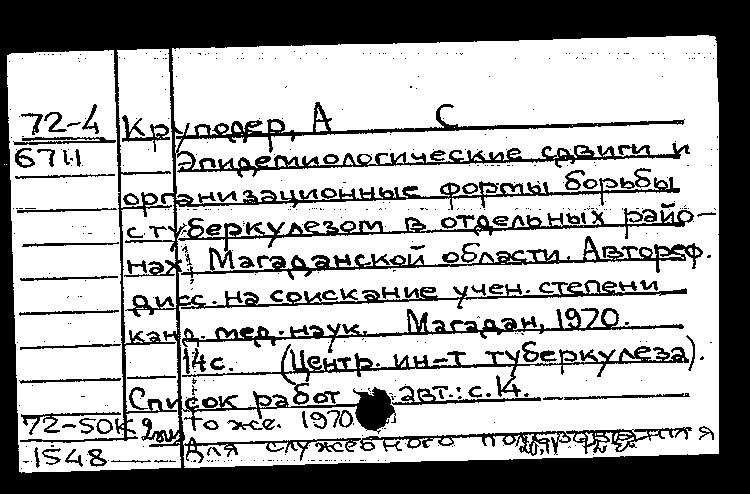 72-4 Круподер, А С
6711 Эпидемиологические сдвиги и
организационные формы борьбы
с туберкулезом в отдельных райо-
нах Магаданской области. Автореф.
дисс. на соискание учен. степени
канд. мед. наук. Магадан, 1970.
14 с. (Центр. ин-т туберкулеза).
Список работ авт.: с. 14.
72-SOK То же. 1970
1548 Для служебного